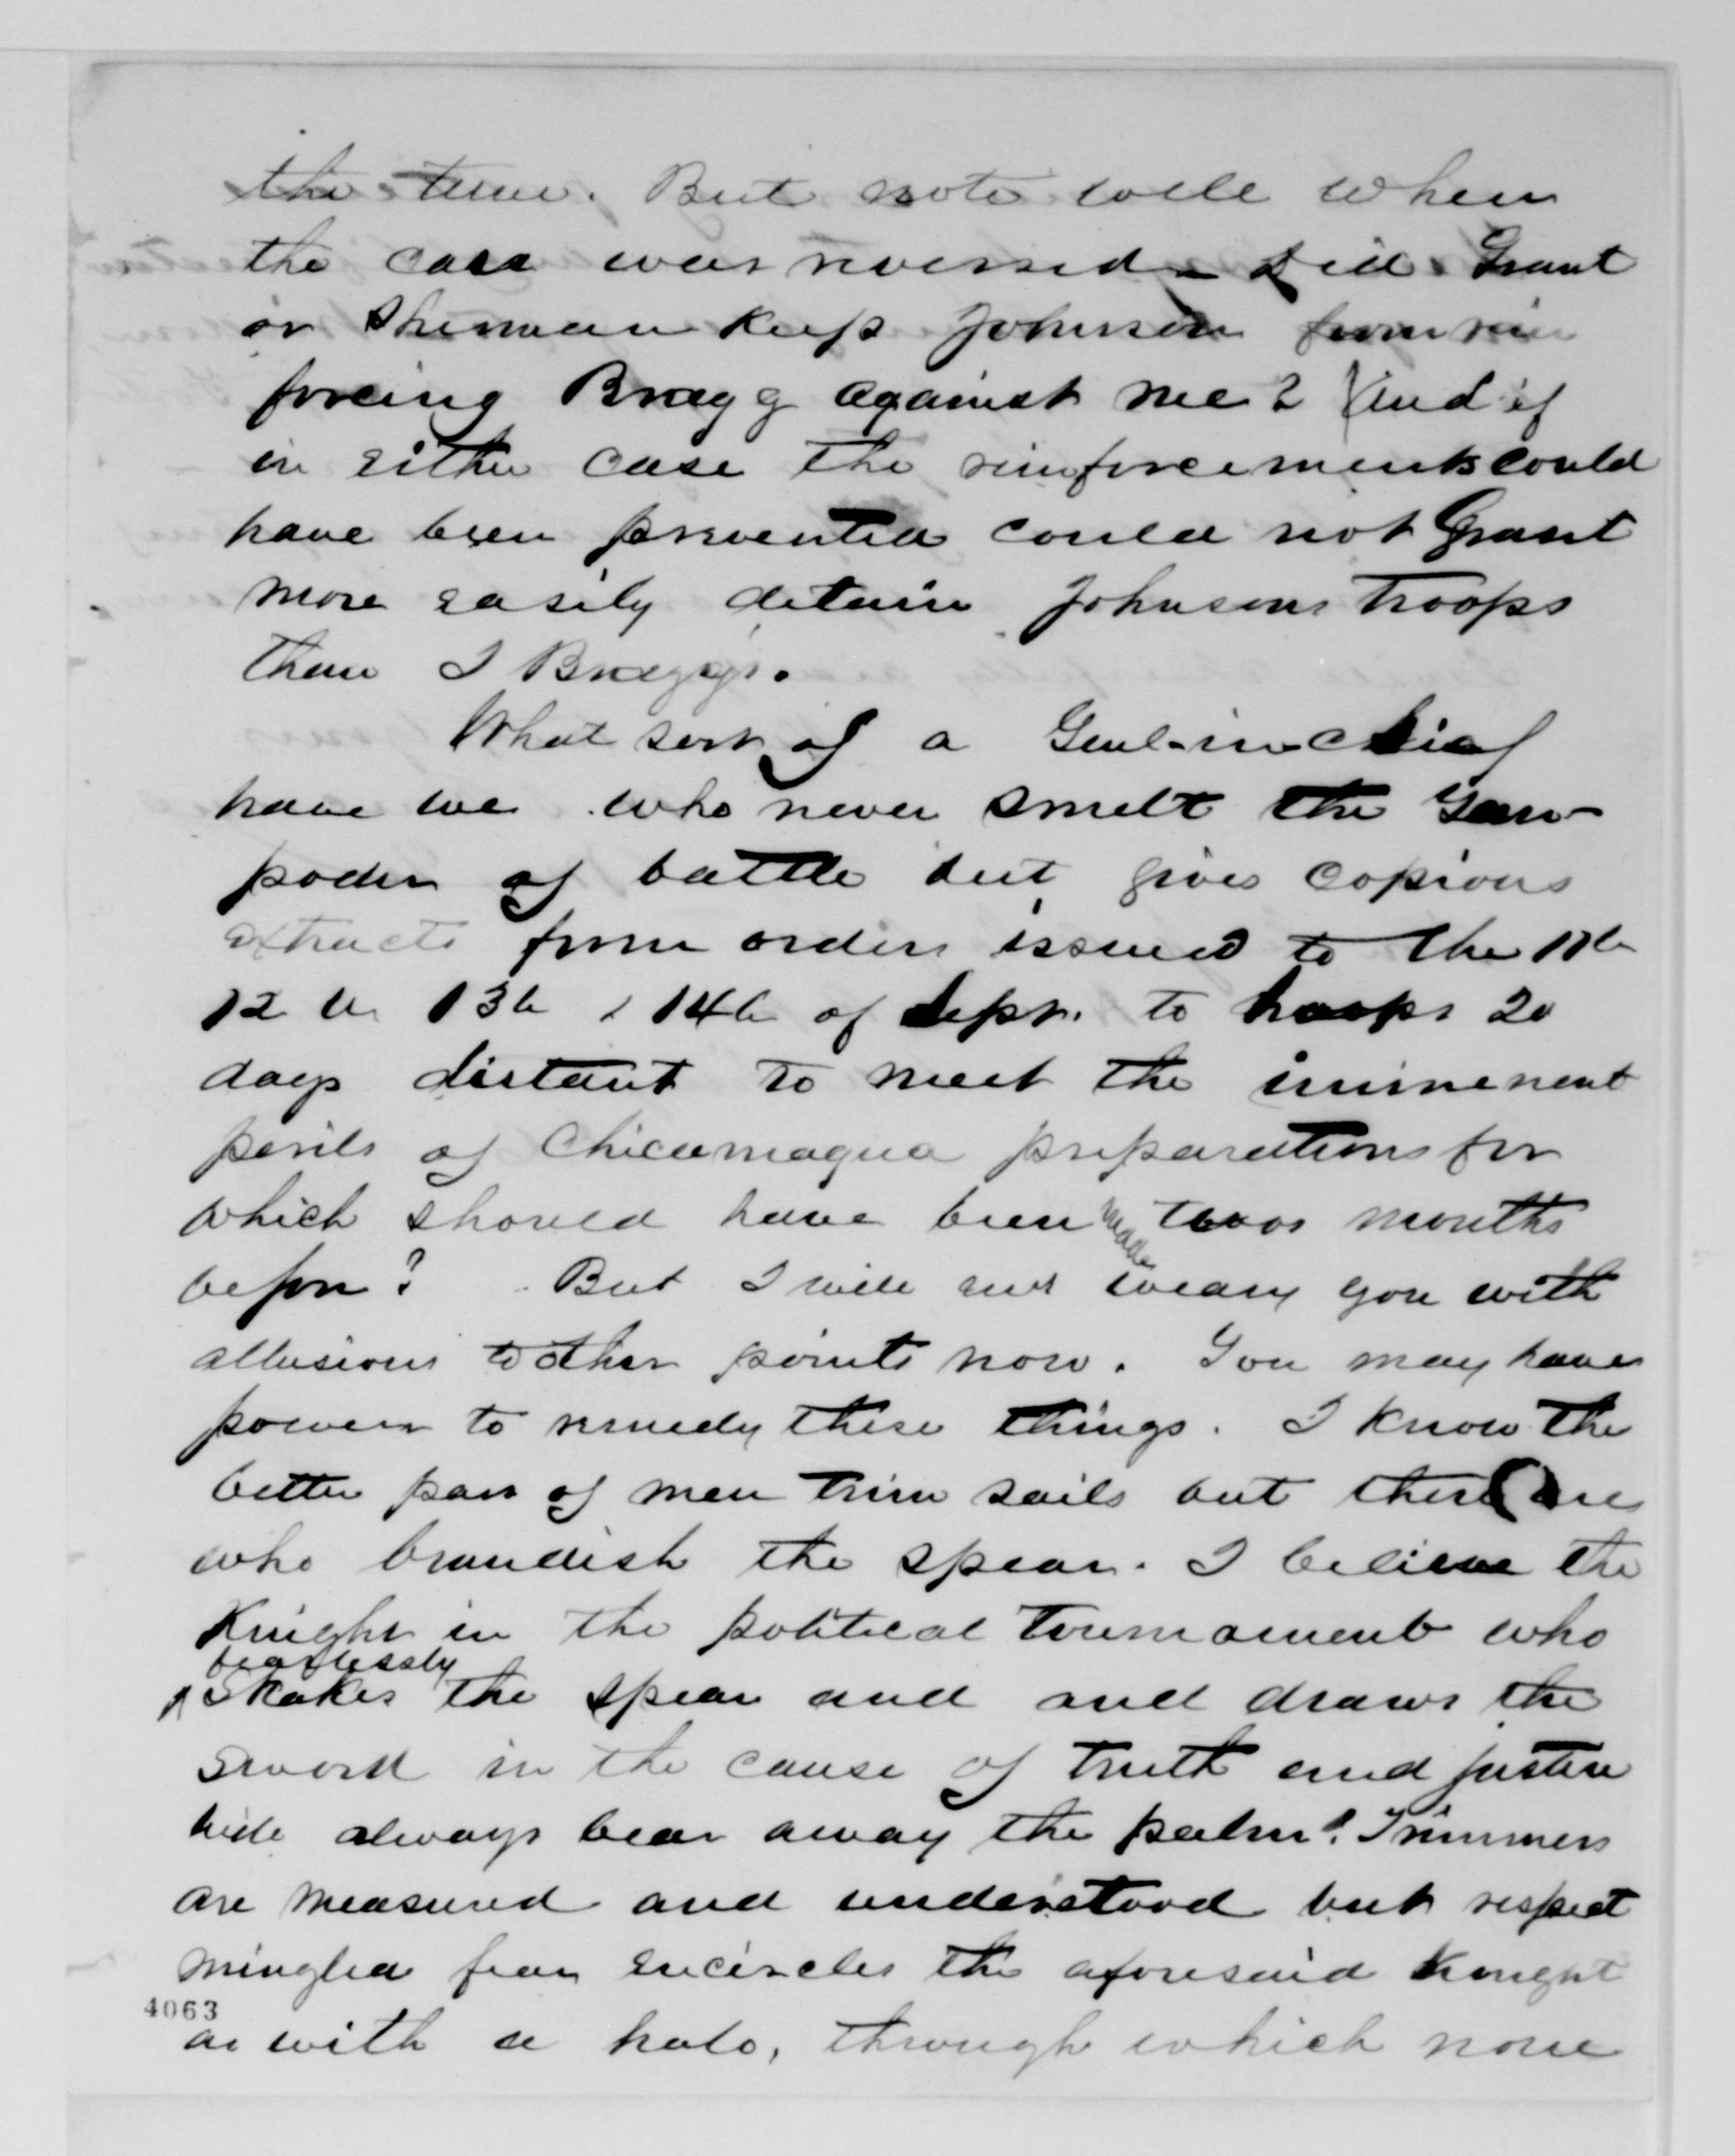 the time. But note well when
the case was reversed - did Grant
or Sherman keep Johnson from rein
forcing Bragg against me? And if
in either case the reinforcements could
have been prevented could not Grant
more easily detain Johnsons troops
than I Braggs.
What sort of a Genl-in-chief
have we who never smelt the Gun-
poder of battle but gives copious
extracts from orders issued to the 11th
12th 13th & 14th of Sept. to troops 20
days distant to meet the imminent
perils of Chicamagua preparations for
which should have been made two months
before? But I will not weary you with
allusions to other points now. You may have
power to remedy these things. I know the
better part of men trim sails but there are
who brandish the spear. I believe the
Knight in the political tournament who
fearlessly
shakes the spear and and draws the
sword in the cause of truth and justice
will always bear away the palm! Trimmers
are measured and understood but respect
mingled fear encircles the aforesaid Knight
4063
as with a halo, through which none